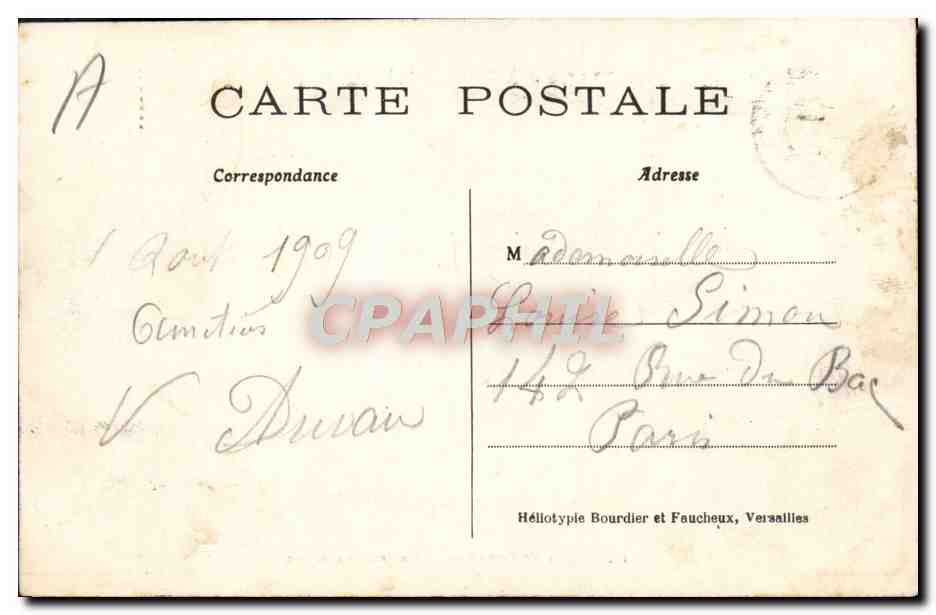 A
CARTE POSTALE
Correspondance
Adresse
1 Aout 1909
Amitiés
V Duvau
Mademoiselle
Louise Simon
142 Rue du Bac
Paris
CPAPHIL
Héliotypie Bourdier et Faucheux, Versailles